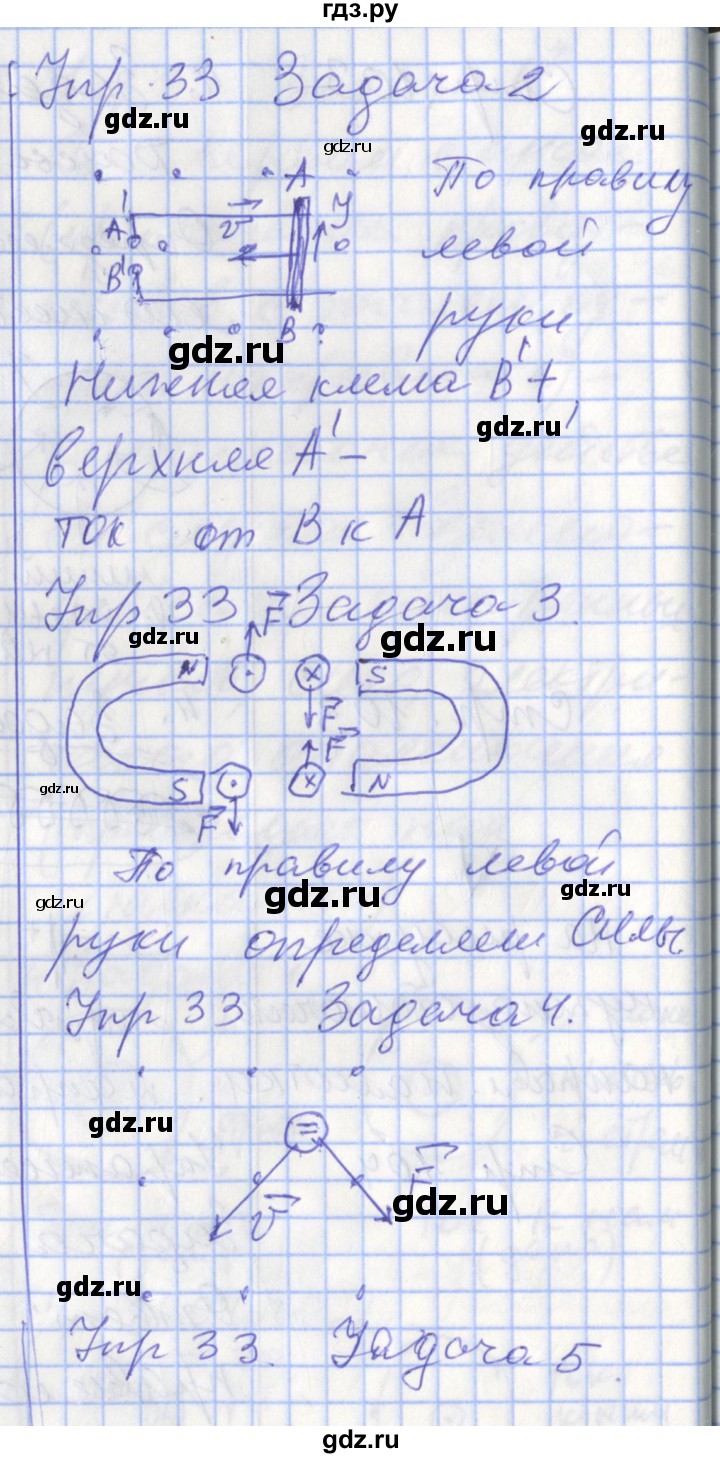 гдз.ру
Упр 33 Задача 2
gdz.ru
gdz.ru
gdz.ru
A
По правилу
A'
v
J
левой
B'
B
руки
gdz.ru
Нижняя клема B' +
gdz.ru
верхняя A' -
ток от B к A
Упр 33 Задача 3
gdz.ru
gdz.ru
F
N
S
F
F
gdz.ru
S
N
F
По правилу левой
gdz.ru
gdz.ru
gdz.ru
руки определяем силы.
Упр 33 Задача 4.
gdz.ru
=
v
F
gdz.ru
gdz.ru
Упр 33. Задача 5.
gdz.ru